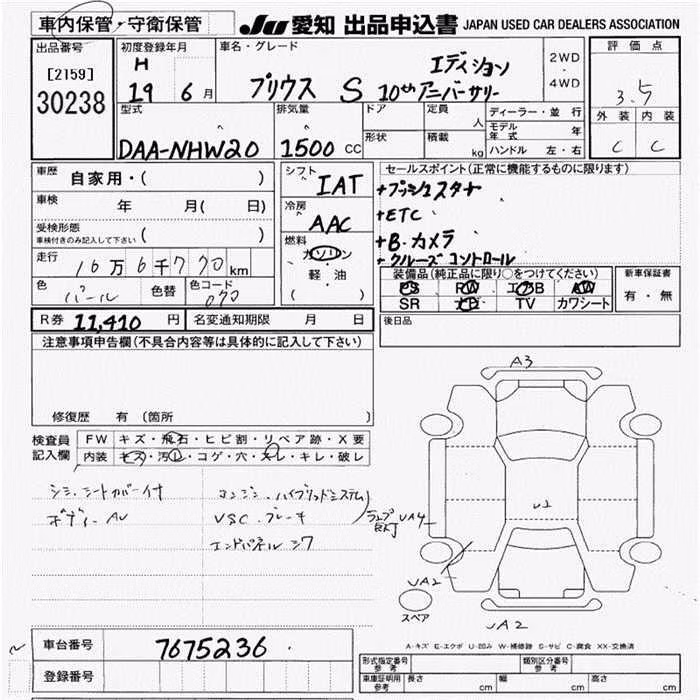 車内保管・守衛保管
JU 愛知 出品申込書 JAPAN USED CAR DEALERS ASSOCIATION
出品番号 初度登録年月 車名・グレード 2WD・4WD 評価点
[2159] H エディション 3.5
30238 19 6月 プリウス S 10thアニバーサリー
外装 内装
C C
型式 排気量 ドア 定員 人 ディーラー・並行
形状 積載 kg モデル年式 年
DAA-NHW20 1500 CC ハンドル 左・右
車歴 自家用・( ) シフト IAT
セールスポイント(正常に機能するものに限ります)
車検 年 月( 日) 冷房 AAC
+プッシュスタート
+ETC
+B・カメラ
+クルーズコントロール
受検形態 ( )
車検付きのみ記入して下さい
走行 16万6千770km
燃料 ガソリン
軽・油
( )
色 パール 色替 色コード 070
装備品(純正品に限り○をつけてください) 新車保証書
PS PW エアB AW 有・無
SR ナビ TV カワシート
R券 11,410円 名変通知期限 月 日
後日品
注意事項申告欄(不具合内容等は具体的に記入して下さい)
修復歴 有 (箇所 )
検査員 FW キズ・飛石・ヒビ割・リペア跡・X要
記入欄 内装 キズ・汚レ・コゲ・穴・スレ・キレ・破レ
シミ.シートカバー付 エンジン.ハイブリッドシステム
ボディー AU VSC.ブレーキ
ランプ点灯
エンドパネル シワ
A3
U1
UA4
UA2
UA2
スペア
A-キズ E-エクボ U-凹み W-補修跡 S-サビ C-腐食 XX-交換済
車台番号 7675236
登録番号
形式指定番号 参考 類別区分番号 参考
車庫証明用 参考 長さ cm 幅 cm 高さ cm